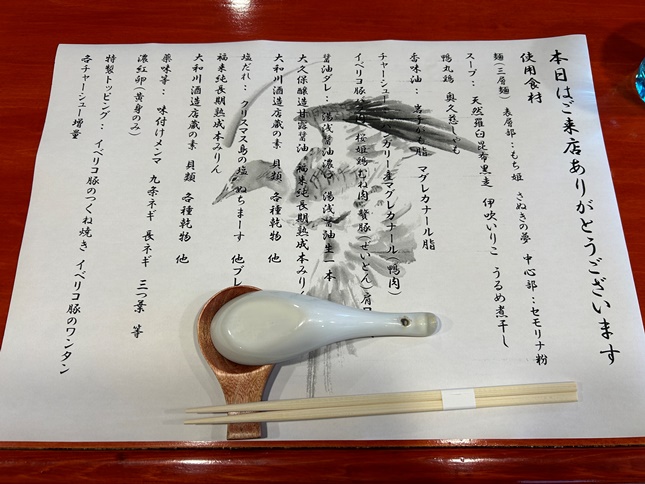 本日はご来店ありがとうございます
使用食材
麺(三層麺) 表層部:もち姫 さぬきの夢 中心部:セモリナ粉
スープ: 天然羅臼昆布黒走 伊吹いりこ うるめ煮干し
鴨丸鶏 奥久慈しゃも
香味油: 脂 マグレカナール脂
チャーシュー ガリー産マグレカナール(鴨肉)
イベリコ豚 桜姫鶏むね肉 贅豚(ぜいとん)肩ロ
醤油ダレ: 湯浅醤油濃口 湯浅醤油生一本
大久保醸造甘露醤油 福来純長期熟成本みりん
大和川酒造店蔵の素 貝類 各種乾物 他
塩だれ: クリスマス島の塩 ぬちまーす 他ブレ
福来純長期熟成本みりん
大和川酒造店蔵の素 貝類 各種乾物 他
薬味等: 味付けメンマ 九条ネギ 長ネギ 三つ葉 等
濃紅卵(黄身のみ)
特製トッピング: イベリコ豚のつくね焼き イベリコ豚のワンタン
各チャーシュー増量